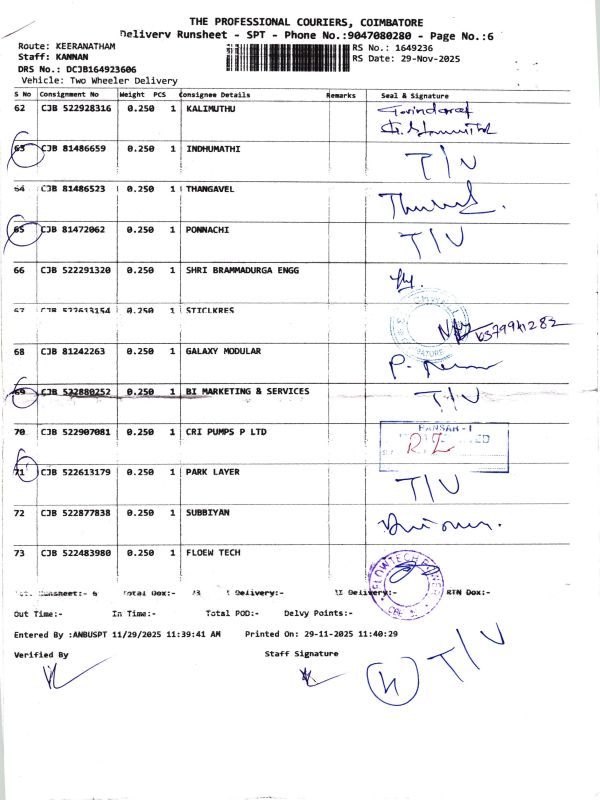 THE PROFESSIONAL COURIERS, COIMBATORE
Delivery Runsheet - SPT - Phone No.:9047080280 - Page No.:6
Route: KEERANATHAM RS No.: 1649236
Staff: KANNAN RS Date: 29-Nov-2025
DRS No.: DCJB164923606
Vehicle: Two Wheeler Delivery
S No Consignment No Weight PCS Consignee Details Remarks Seal & Signature
62 CJB 522928316 0.250 1 KALIMUTHU Govindaraj
63 CJB 81486659 0.250 1 INDHUMATHI T/V
64 CJB 81486523 0.250 1 THANGAVEL
65 CJB 81472062 0.250 1 PONNACHI T/V
66 CJB 522291320 0.250 1 SHRI BRAMMADURGA ENGG
67 CJB 522613154 0.250 1 STICLKRES
68 CJB 81242263 0.250 1 GALAXY MODULAR
69 CJB 522880252 0.250 1 BI MARKETING & SERVICES T/V
70 CJB 522907081 0.250 1 CRI PUMPS P LTD
71 CJB 522613179 0.250 1 PARK LAYER T/V
72 CJB 522877838 0.250 1 SUBBIYAN
73 CJB 522483980 0.250 1 FLOEW TECH
Runsheet:- 6 Total Dox:- 73 Delivery:- Delivery:- RTN Dox:-
Out Time:- In Time:- Total POD:- Delvy Points:-
Entered By :ANBUSPT 11/29/2025 11:39:41 AM Printed On: 29-11-2025 11:40:29
Verified By Staff Signature
T/V